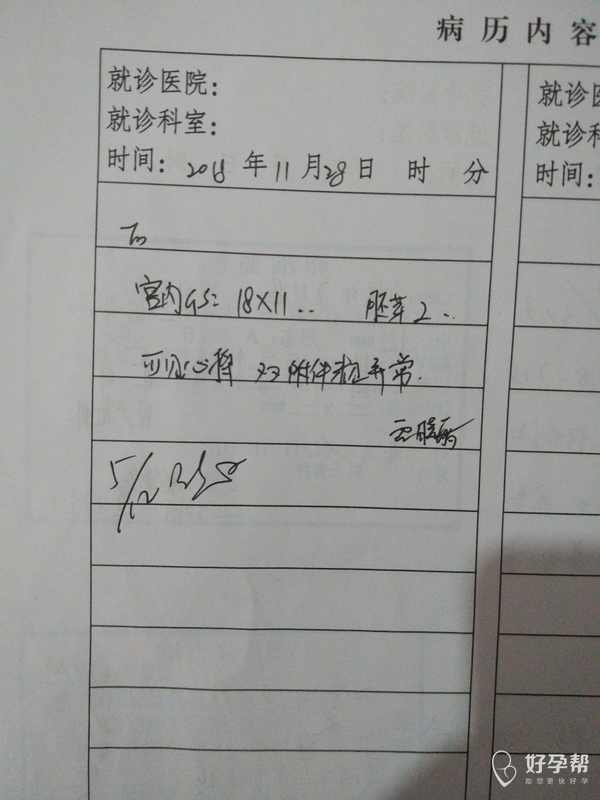 病历内容
就诊医院：
就诊科室：
时间：2018年11月28日 时 分
宫内GS：18×11.. 胚芽2..
可见心搏 双附件未见异常.
5/12 B超
就诊医
就诊科
时间：
好孕帮
助您更快好孕